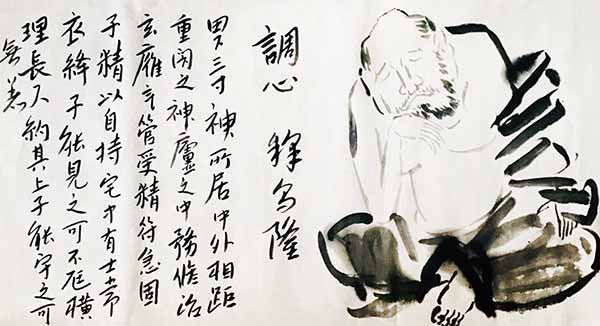 調心
三寸神所居中外相距
重閉之神廬之中務脩治
玄廱氣管受精符急固
子精以自持宅中有士常
衣絳子能見之可不橫
理長尺約其上子能守之可
無恙